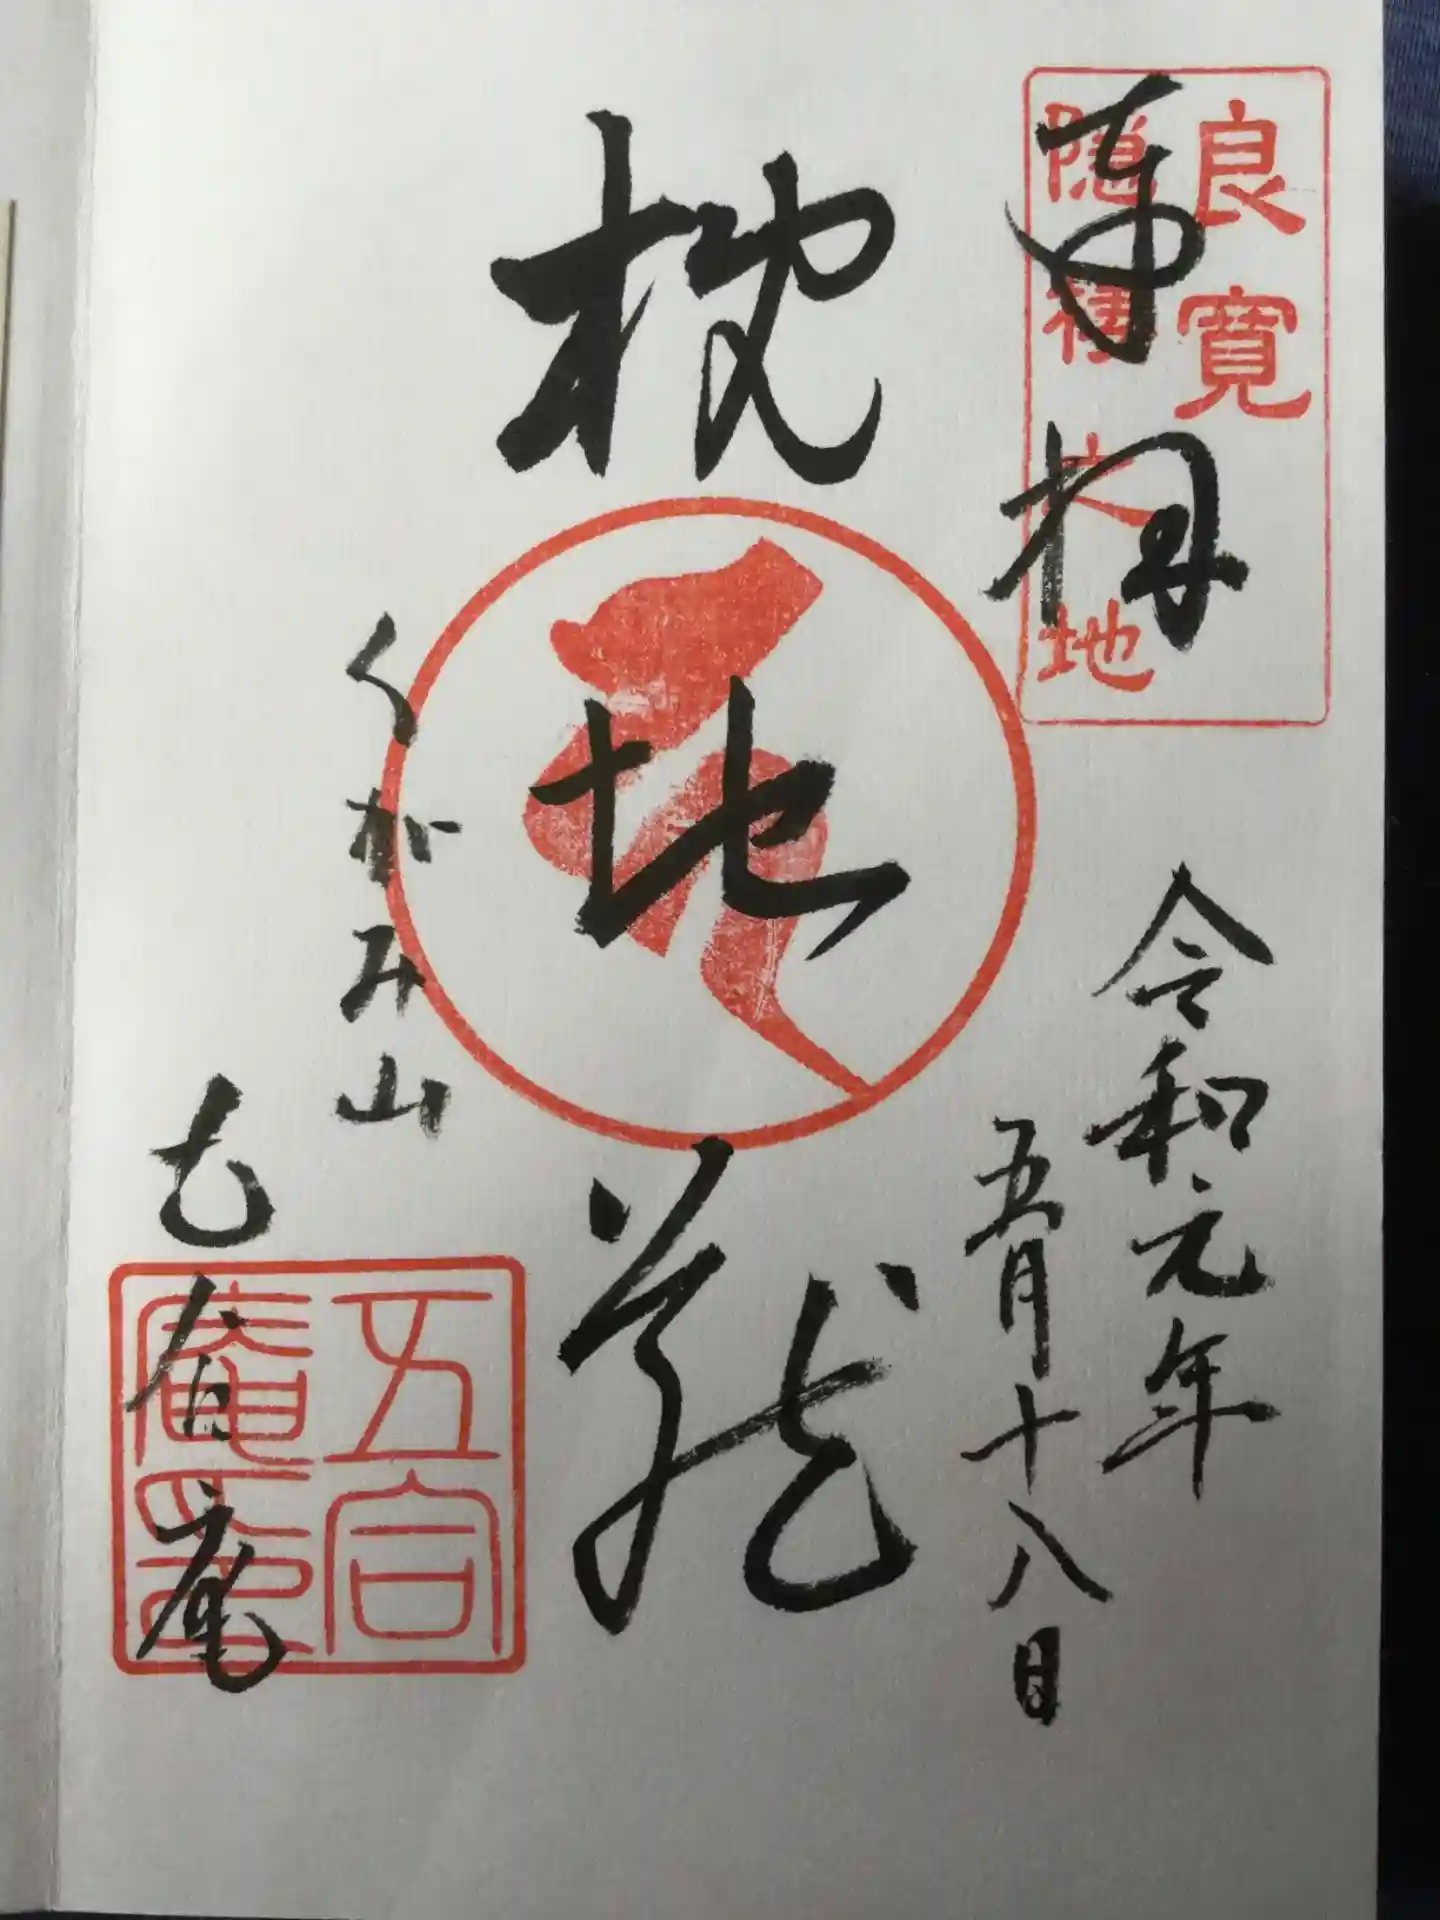 良寛
隠棲之地
奉拝
令和元年
五月十八日
枕地蔵
くがみ山
五合庵
五合
庵印